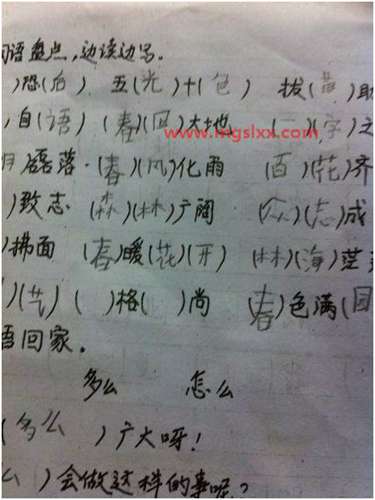 词语盘点，边读边写。
)恐(后) 五(光)十(色) 拔(苗)助
)自(语) (春)(风)大地 (一)(字)之
www.mgslxx.com
语落 (春)(风)化雨 (百)(花)齐
)致志 (森)(林)广阔 (众)(志)成
)拂面 (春)暖(花)(开) (林)(海)茫
)(艺) ( )格( )尚 (春)色满(园
语回家。
多么 怎么
(多么 )广大呀！
么 )会做这样的事呢？